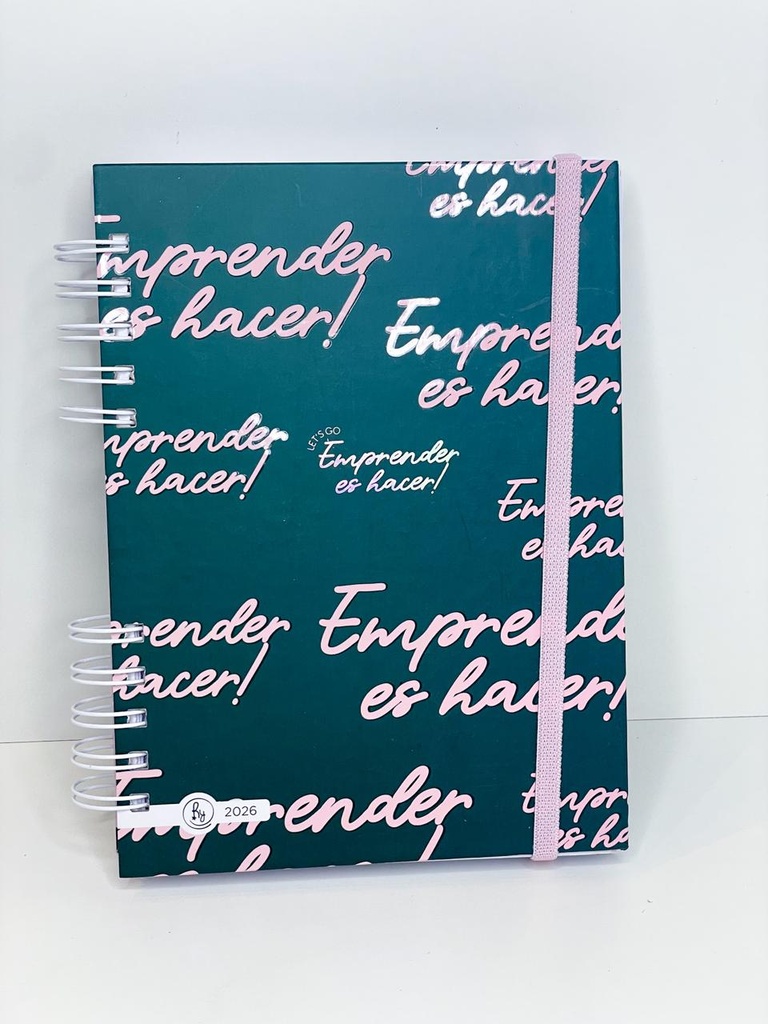 Empren
es hacer!
mprender
es hacer!
Emprend
es hacer!
mprender
s hacer!
LET'S GO
Emprender
es hacer!
Empre
es ha
render
hacer!
Emprende
es hacer!
Emprender
Empr
es ha
by 2026